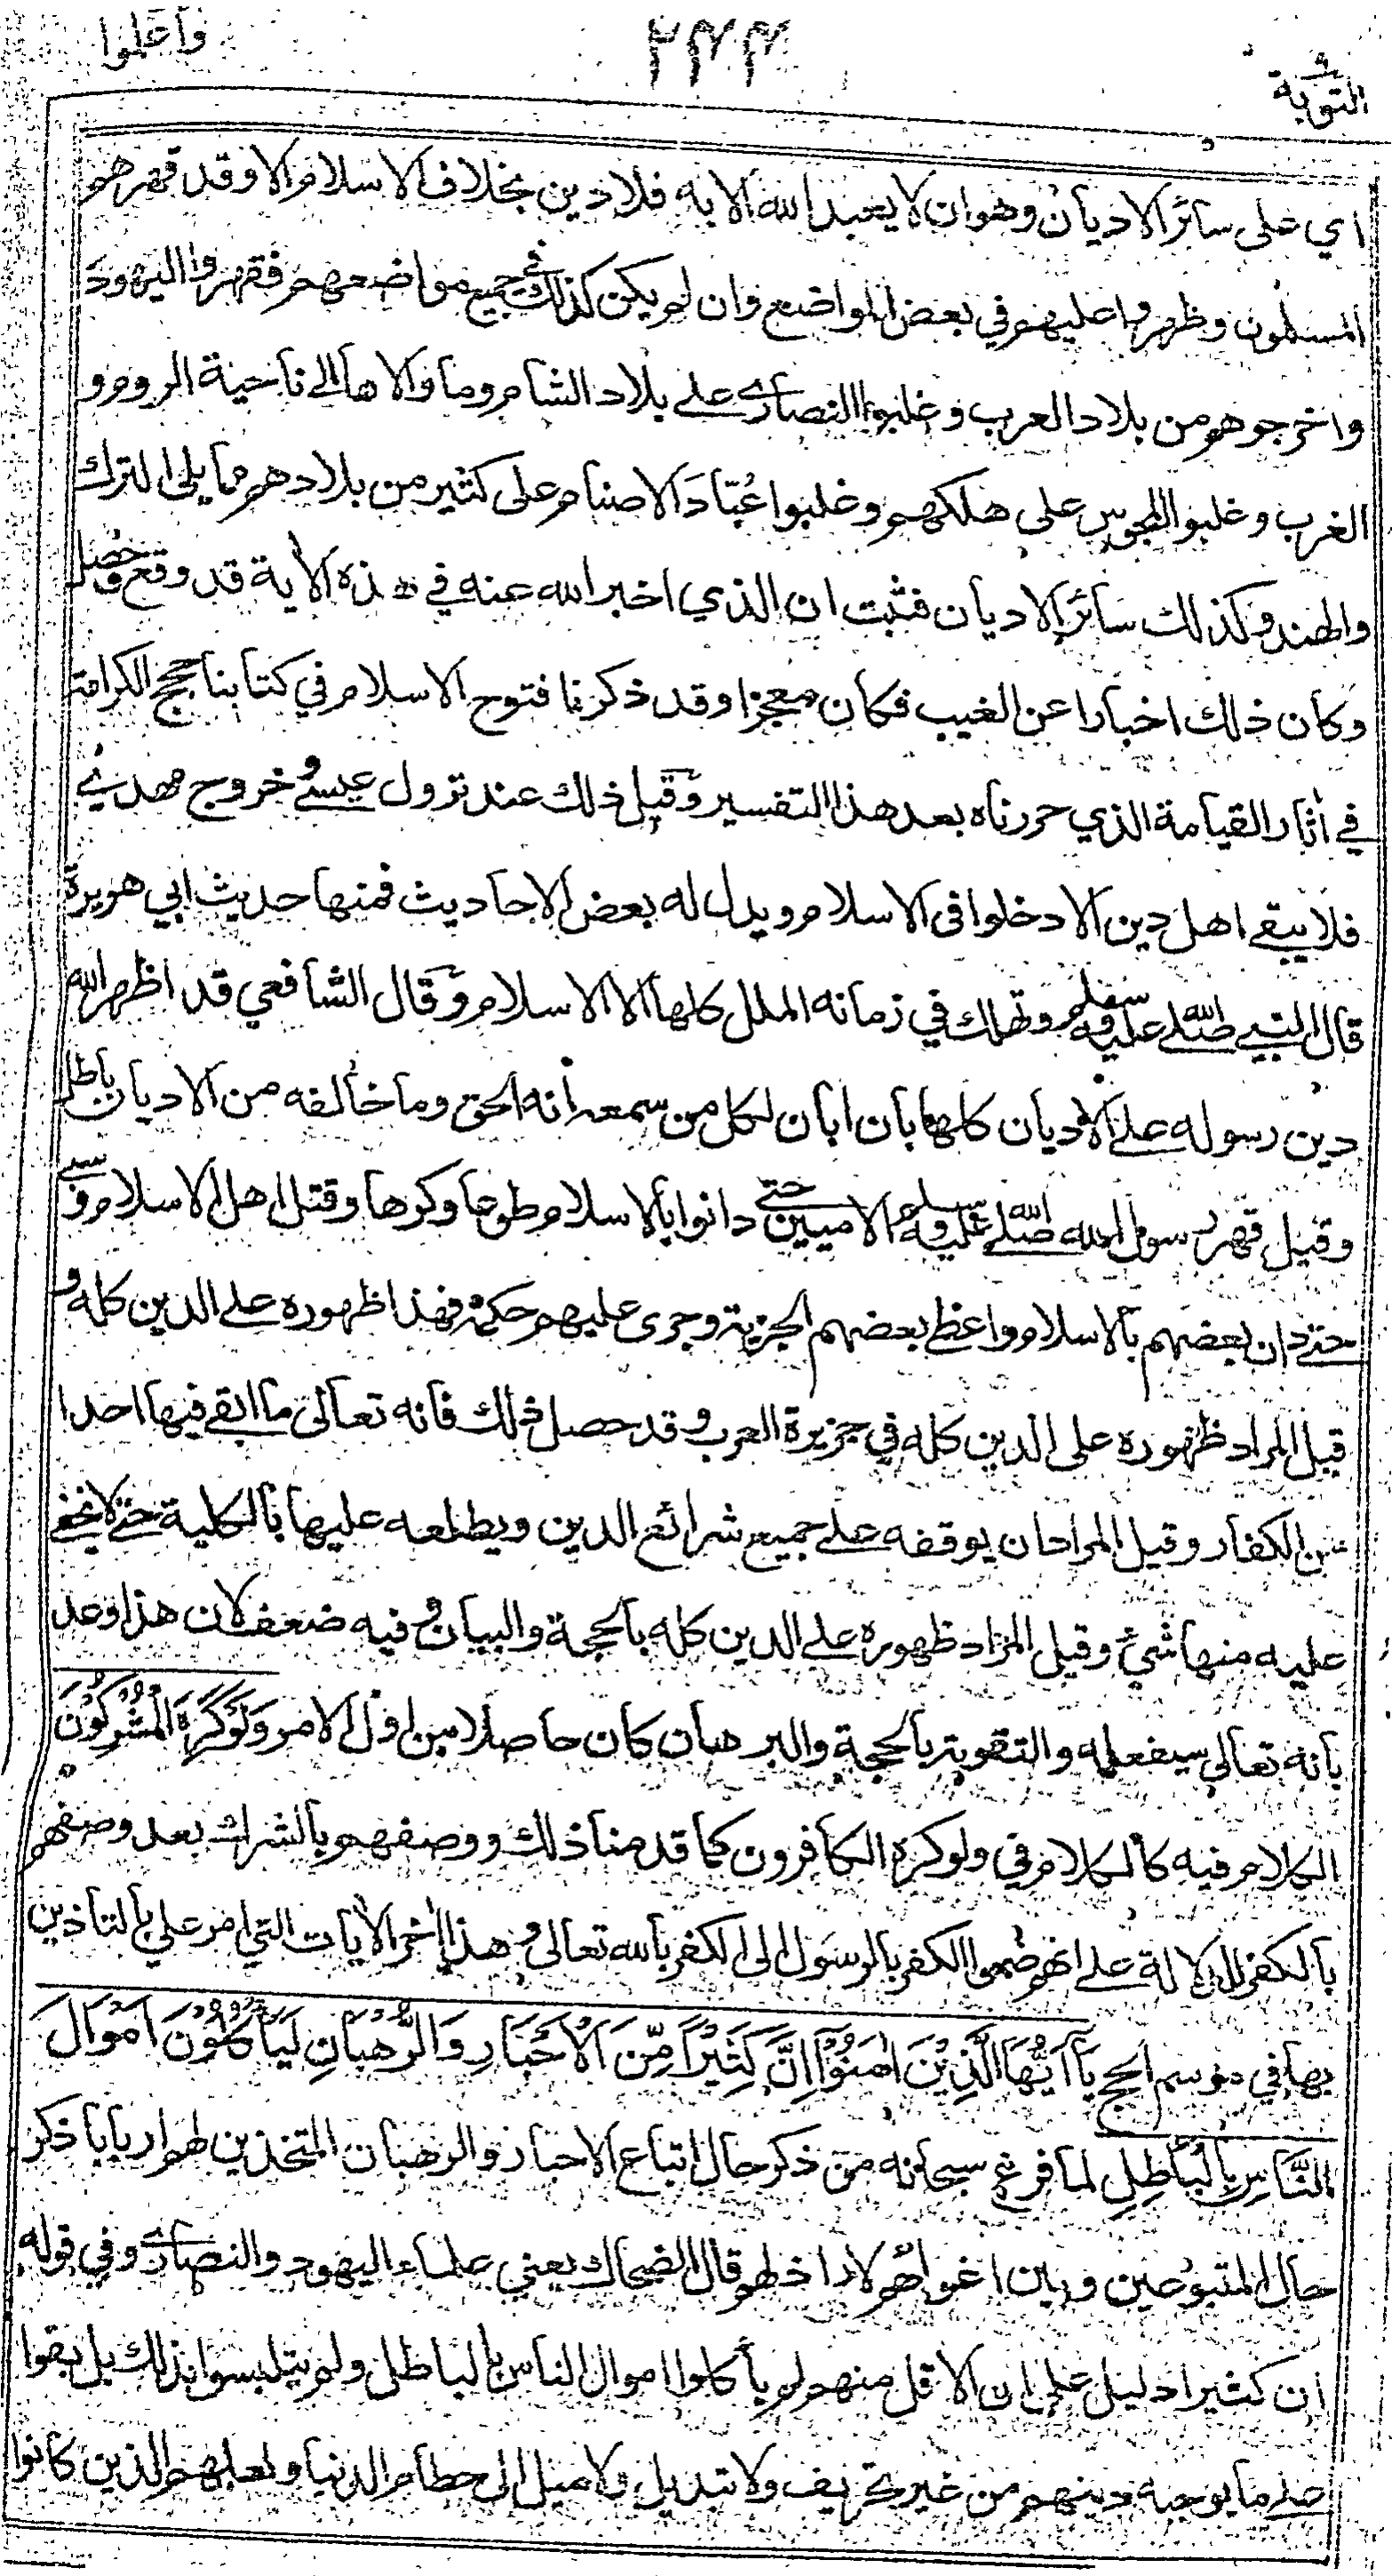 التوبة
٢٣٣
واعلموا
اي على سائر الاديان وهو ان لا يعبد الله الا به فلا دين بخلاف الاسلام الا وقد قهرهم
المسلمون وظهروا عليهم في بعض المواضع وان لم يكن كذلك في جميع مواضعهم فقهروا اليهود
واخرجوهم من بلاد العرب وغلبوا النصارى على بلاد الشام وما والاها الى ناحية الروم و
الغرب وغلبوا المجوس على ملكهم وغلبوا عُبّادَ الاصنام على كثير من بلادهم مما يلي الترك
والهند وكذلك سائر الاديان فثبت ان الذي اخبر الله عنه في هذه الاية قد وقع وحصل
وكان ذلك اخبارا عن الغيب فكان معجزا وقد ذكرنا فتوح الاسلام في كتابنا حجج الكرامة
في اثار القيامة الذي حررناه بعد هذا التفسير وقيل ذلك عند نزول عيسى و خروج مهدي
فلا يبقى اهل دين الا دخلوا في الاسلام ويدل له بعض الاحاديث فمنها حديث ابي هريرة
قال النبي صلى الله عليه وسلم وتهلك في زمانه الملل كلها الا الاسلام وقال الشافعي قد اظهر الله
دين رسوله على الاديان كلها بان ابان لكل من سمعه انه الحق وما خالفه من الاديان باطل
وقيل قهر رسول الله صلى الله عليه وسلم الاميين حتى دانوا بالاسلام طوعا وكرها وقتل اهل الاسلام و سبى
حتى دان بعضهم بالاسلام واعطى بعضهم الجزية وجرى عليهم حكمه فهذا ظهوره على الدين كله و
قيل المراد ظهوره على الدين كله في جزيرة العرب وقد حصل ذلك فانه تعالى ما ابقى فيها احدا
من الكفار وقيل المراد ان يوقفه على جميع شرائع الدين ويطلعه عليها بالكلية حتى لا يخفى
عليه منها شيء وقيل المراد ظهوره على الدين كله بالحجة والبيان وفيه ضعف لان هذا وعد
بانه تعالى سيفعله والتقوية بالحجة والبرهان كان حاصلا من اول الامر وَلَوْ كَرِهَ الْمُشْرِكُوْنَ
الكلام فيه كالكلام في ولو كره الكافرون كما قدمنا ذلك ووصفهم بالشرك بعد وصفهم
بالكفر للدلالة على انهم ضموا الكفر بالرسول الى الكفر بالله تعالى و هذا اخر الايات التي امر علي بالتاذين
بها في موسم الحج يَآ اَيُّهَا الَّذِيْنَ اٰمَنُوْٓا اِنَّ كَثِيْرًا مِّنَ الْاَحْبَارِ وَالرُّهْبَانِ لَيَاْكُلُوْنَ اَمْوَالَ
النَّاسِ بِالْبَاطِلِ لما فرغ سبحانه من ذكر حال اتباع الاحبار والرهبان المتخذين لهم اربابا ذكر
حال المتبوعين وبين اغواءهم لاراذلهم قال الضحاك يعني علماء اليهود والنصارى وفي قوله
ان كثيرا دليل على ان الاقل منهم لم ياكلوا اموال الناس بالباطل ولم يتلبسوا بذلك بل بقوا
على ما يوجبه دينهم من غير تحريف ولا تبديل ولا ميل الى حطام الدنيا ولعلهم الذين كانوا